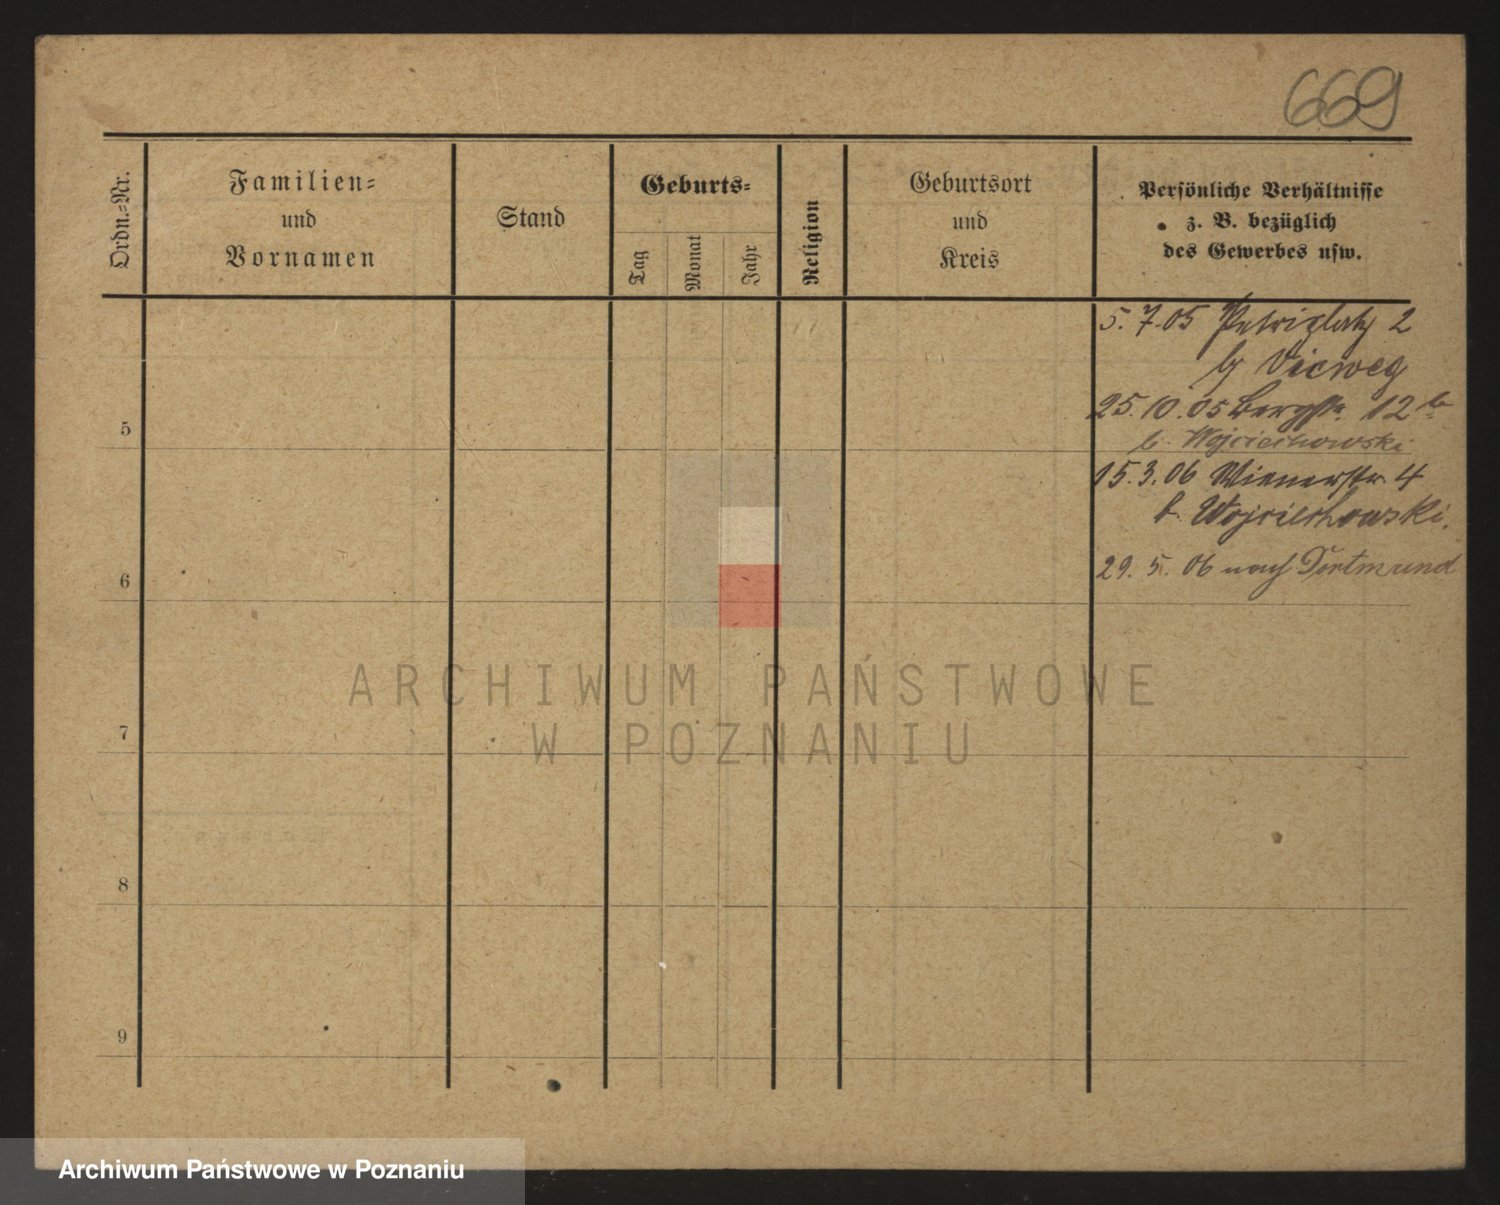 669
Ordn.-Nr.
Familien-
und
Vornamen
Stand
Geburts-
Tag
Monat
Jahr
Religion
Geburtsort
und
Kreis
Persönliche Verhältnisse
z. B. bezüglich
des Gewerbes usw.
5. 7. 05 Petriplatz 2
Vieweg
25. 10. 05 Bergstr. 12b
b. Wojciechowski
15. 3. 06 Wienerstr. 4
b. Wojciechowski.
29. 5. 06 nach Dortmund
5
6
7
8
9
ARCHIWUM PAŃSTWOWE
W POZNANIU
Archiwum Państwowe w Poznaniu